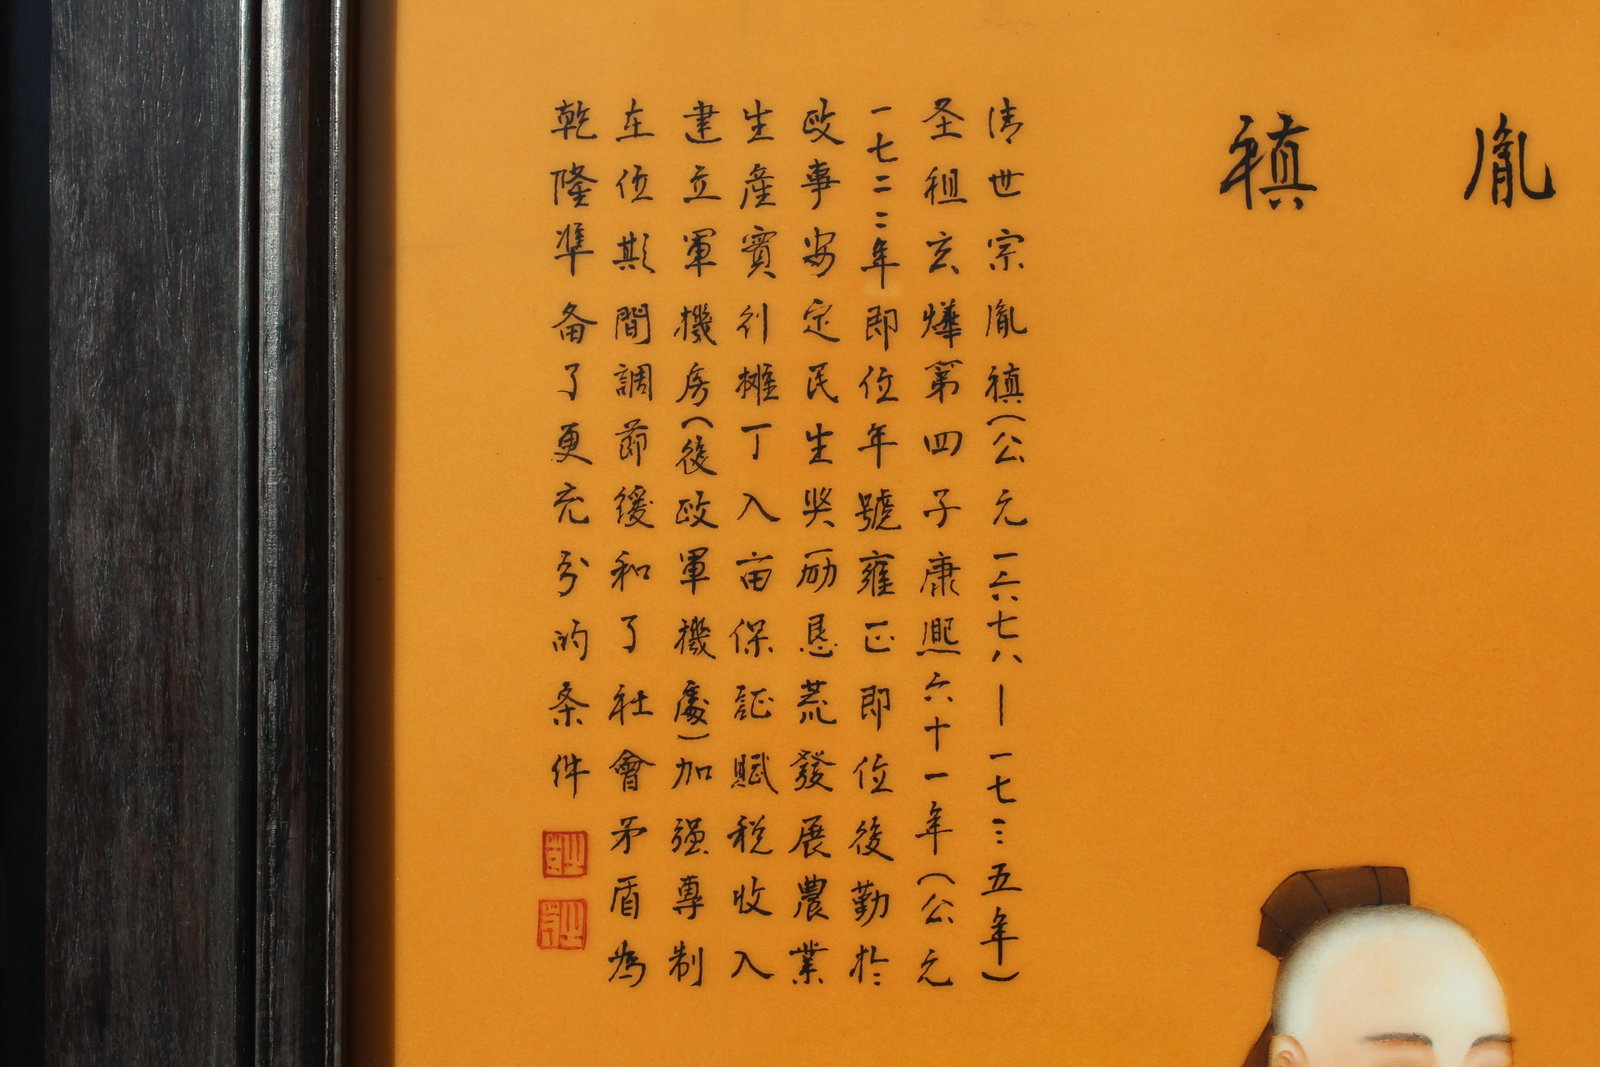 胤禛
清世宗胤禛(公元一六七八—一七三五年)
圣祖玄燁第四子康熙六十一年(公元
一七二二年即位年號雍正即位後勤於
政事安定民生奖励恳荒發展農業
生產實行摊丁入亩保証賦税收入
建立軍機房(後改軍機處)加强專制
在位期間調節缓和了社會矛盾為
乾隆準备了更充分的条件